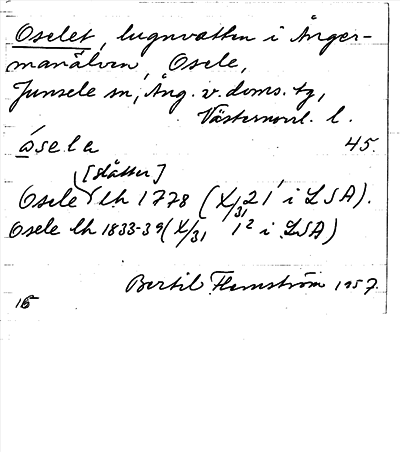 Oselet, lugnvatten i Ånger-
manälven, Osele,
Junsele sn, Ång. v. doms. tg,
Västernorrl. l.
ósela 45.
[slåtter]
Osele lh 1778 (X/31 21' i LSA).
Osele lh 1833-39 (X/31 1² i LSA)
Bertil Flemström 1957.
16